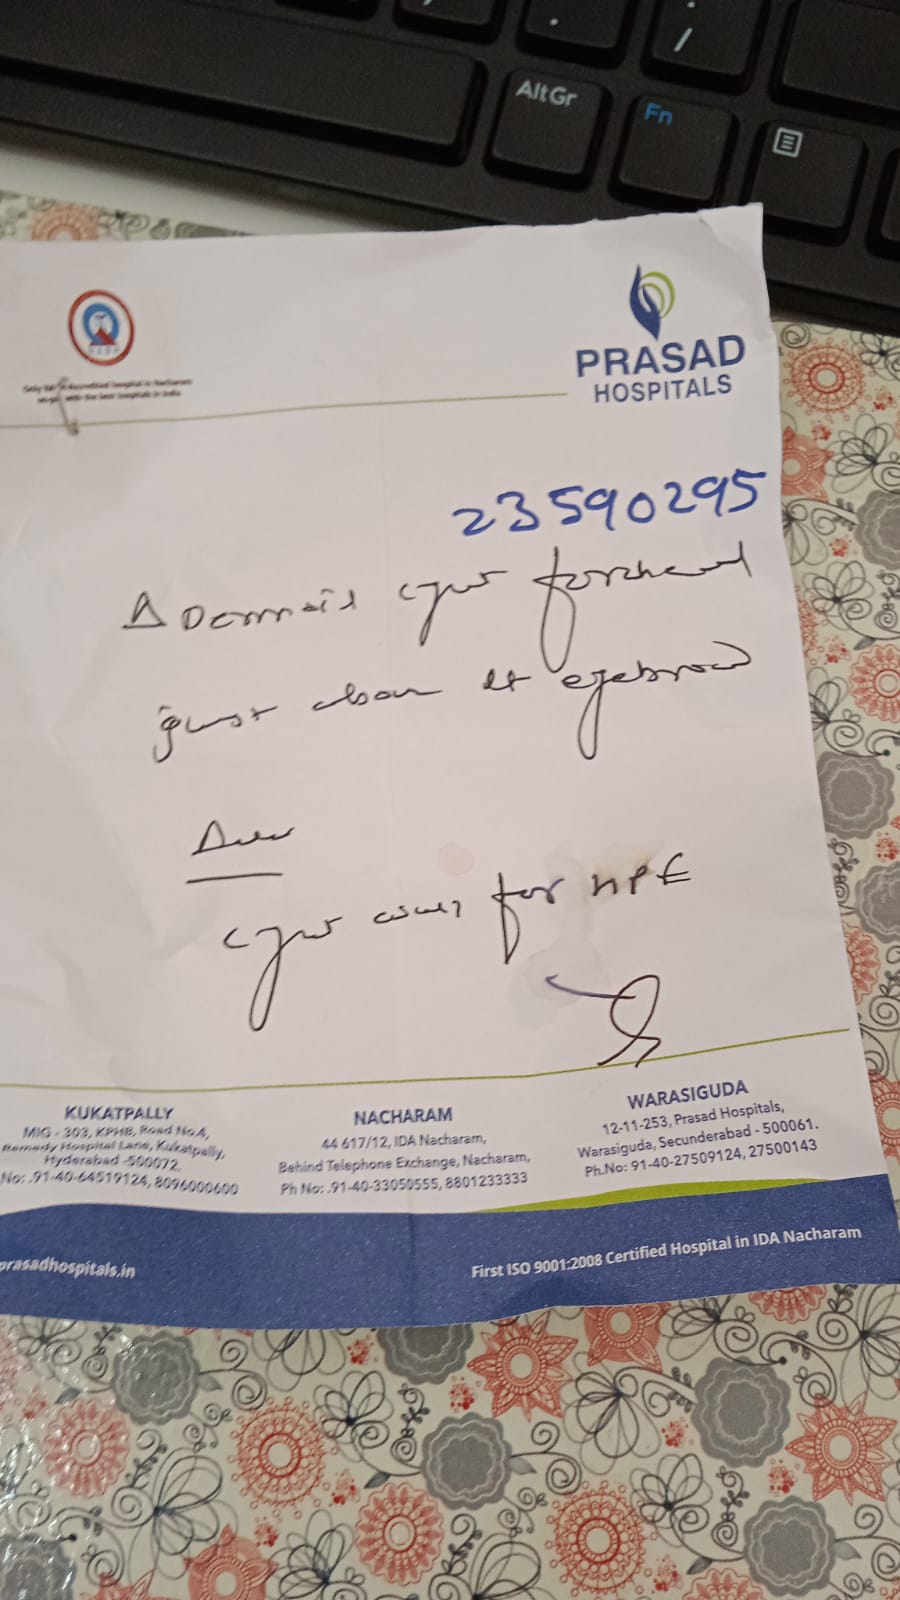 AltGr
Fn
/
PRASAD
HOSPITALS
23590295
Δ Dermoid cyst forehead
just above lt eyebrow
cyst wall for HPE
KUKATPALLY
MIG - 303, KPHB, Road No.4,
Remedy Hospital Lane, Kukatpally,
Hyderabad -500072.
No: .91-40-64519124, 8096000600
NACHARAM
44 617/12, IDA Nacharam,
Behind Telephone Exchange, Nacharam,
Ph No: .91-40-33050555, 8801233333
WARASIGUDA
12-11-253, Prasad Hospitals,
Warasiguda, Secunderabad - 500061.
Ph.No: 91-40-27509124, 27500143
prasadhospitals.in
First ISO 9001:2008 Certified Hospital in IDA Nacharam